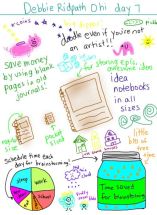 Debbie Ridpath Ohi day 7
doodle even if you're not
an artist!!
Save money
by using blank
pages in old
journals!
for storing epic,
awesome ideas
idea
notebooks
in all
sizes
regular
size
pocket
sized
little bits
of free
time
Schedule time each
day for brainstorming!
sleep
work
Time saved
for
brainstorming